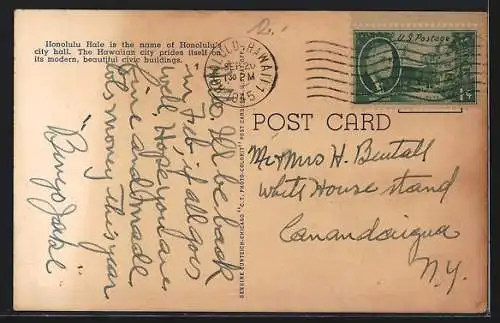 Honolulu Hale is the name of Honolulu's
city hall. The Hawaiian city prides itself on
its modern, beautiful civic buildings.
HONOLULU, HAWAII
1
SEP 20
130 PM
1945
U.S. Postage
1¢
POST CARD
Hello, I'll be back
in Feb if all goes
well, Hope you are
fine and made
lots money this year
"Bingo
GENUINE CURTEICH-CHICAGO "C. T. PHOTO-COLORIT" POST CARD
Mr Mrs H. Bentall
White House stand
Canandaigua
N.Y.